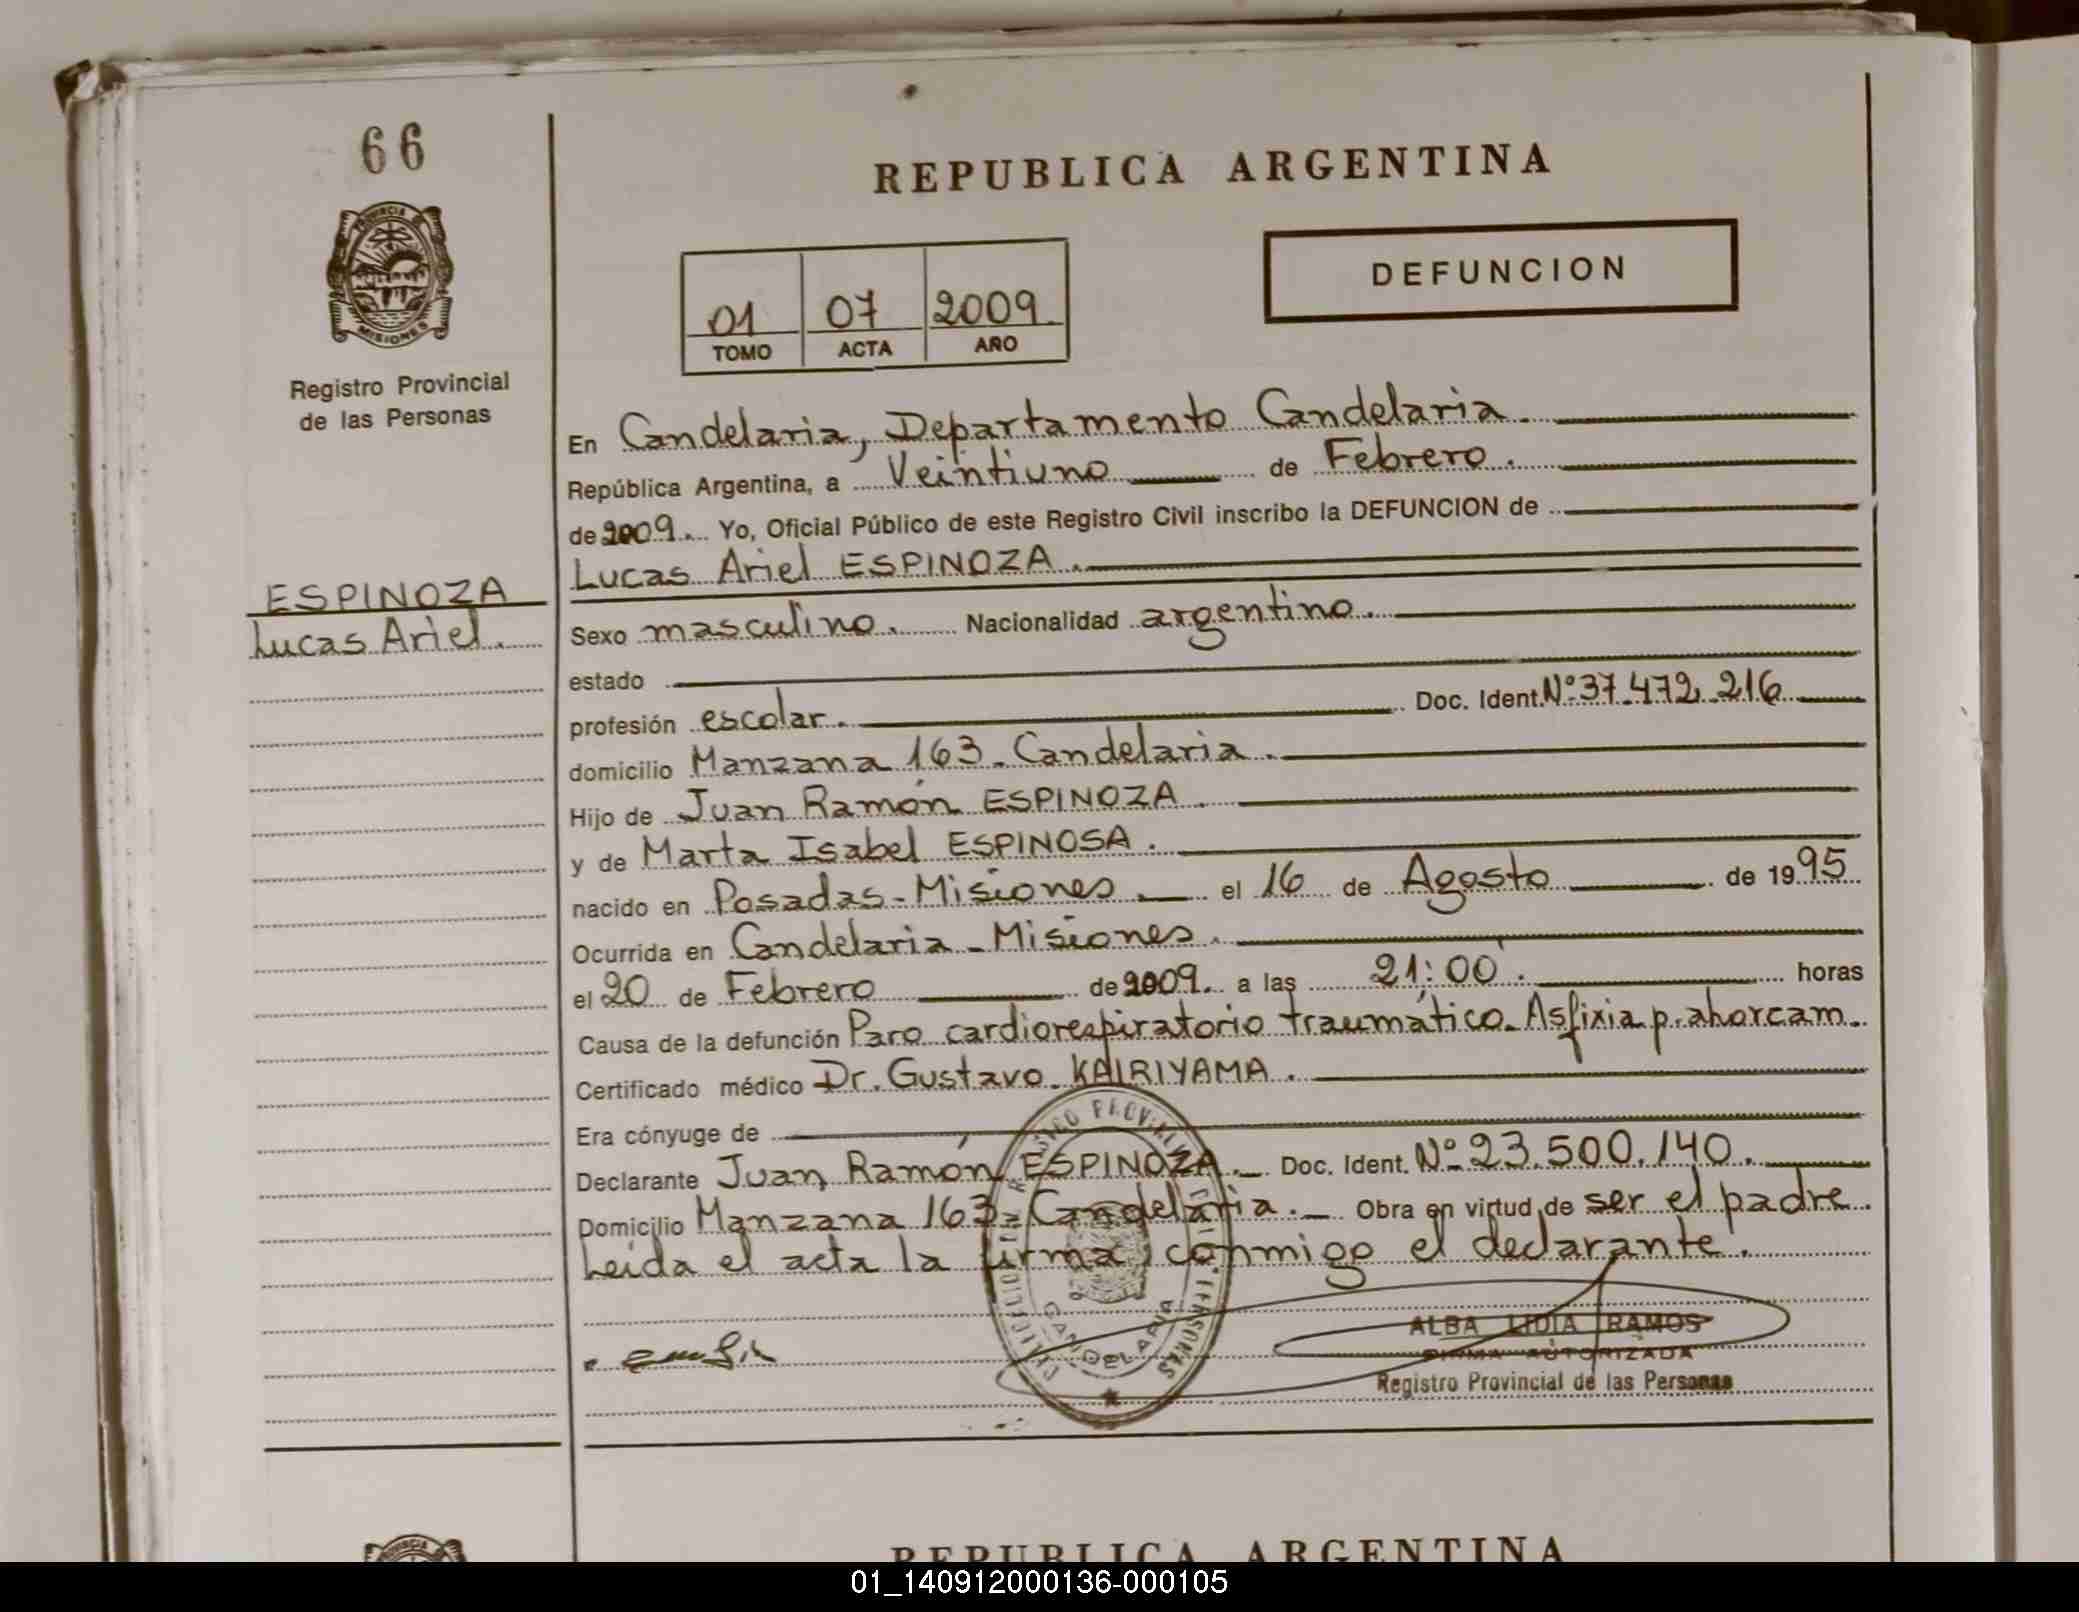 66
REPUBLICA ARGENTINA
PROVINCIA DE
MISIONES
DEFUNCION
01 07 2009
TOMO ACTA AÑO
Registro Provincial
de las Personas
En Candelaria, Departamento Candelaria.
República Argentina, a Veintiuno de Febrero.
de 2009. Yo, Oficial Público de este Registro Civil inscribo la DEFUNCION de
Lucas Ariel ESPINOZA.
ESPINOZA
Lucas Ariel.
Sexo masculino. Nacionalidad argentino.
estado
profesión escolar. Doc. Ident. Nº 37.472.216
domicilio Manzana 163. Candelaria.
Hijo de Juan Ramón ESPINOZA.
y de Marta Isabel ESPINOSA.
nacido en Posadas-Misiones el 16 de Agosto de 1995
Ocurrida en Candelaria-Misiones.
el 20 de Febrero de 2009. a las 21:00. horas
Causa de la defunción Paro cardiorespiratorio traumático. Asfixia p. ahorcam.
Certificado médico Dr. Gustavo KAIRIYAMA.
Era cónyuge de
Declarante Juan Ramón ESPINOZA. Doc. Ident. Nº 23.500.140.
Domicilio Manzana 163- Candelaria. Obra en virtud de ser el padre.
Leída el acta la firma conmigo el declarante.
CANDELARIA
ALBA LIDIA RAMOS
FIRMA AUTORIZADA
Registro Provincial de las Personas
PROVINCIA
REPUBLICA ARGENTINA
01_140912000136-000105